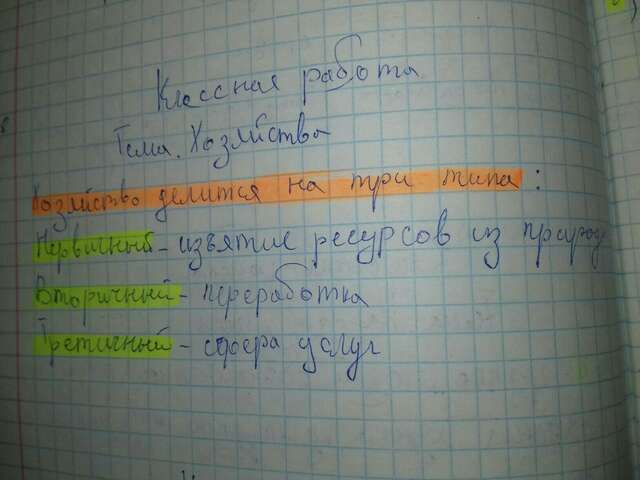 Классная работа
Тема. Хозяйство
Хозяйство делится на три типа:
Первичный - изъятие ресурсов из природ
Вторичный - переработка
Третичный - сфера услуг